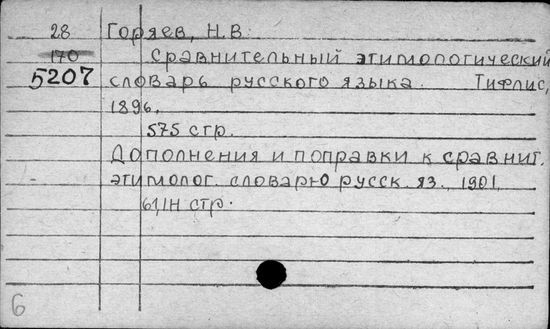 28 Горяев, Н.В.
170 Сравнительный этимологический
5207 словарь русского языка. Тифлис,
1896.
575 стр.
Дополнения и поправки к сравнит.
этимолог. словарю русск. яз., 1901.
стр.
6